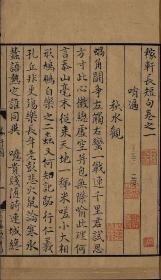 稼軒長短句卷之一
哨遍
秋水觀
蝸角鬭爭左觸右蠻一戰連千里君試思
方寸此心微總虛空并包無際喻此理何
言泰山毫末從來天地一稊米嗟小大相
形鳩鵬自樂之二蟲又何知記跖行仁義
孔丘非更殤樂長年老彭悲火鼠論寒冰
蠶語熱定誰同異 噫貴賤隨時連城纔